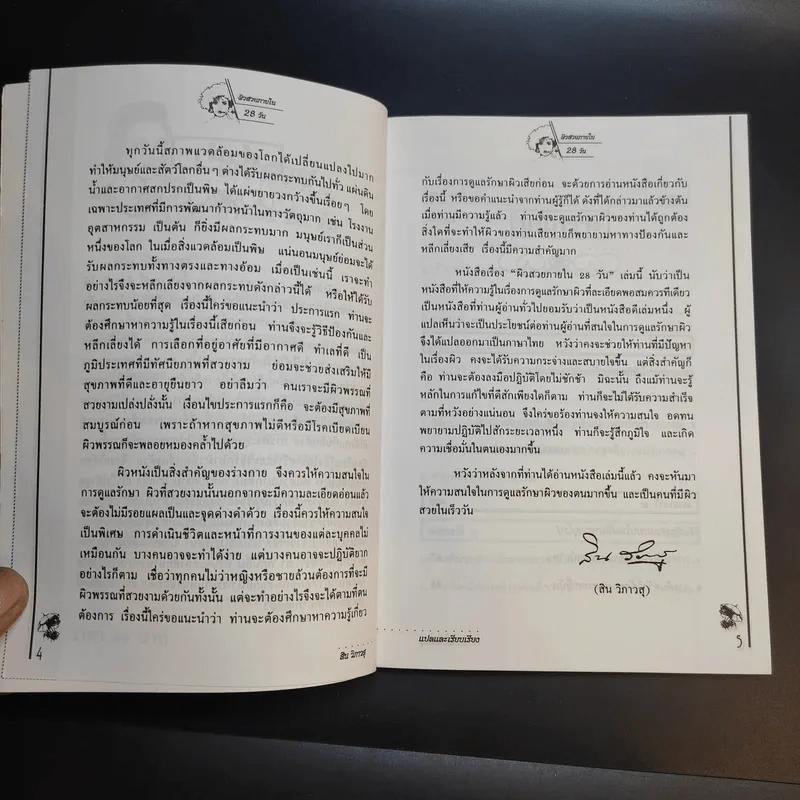 ผิวสวยภายใน
28 วัน
ทุกวันนี้สภาพแวดล้อมของโลกได้เปลี่ยนแปลงไปมาก
ทำให้มนุษย์และสัตว์โลกอื่นๆ ต่างได้รับผลกระทบกันไปทั่ว แผ่นดิน
น้ำและอากาศสกปรกเป็นพิษ ได้แผ่ขยายวงกว้างขึ้นเรื่อยๆ โดย
เฉพาะประเทศที่มีการพัฒนาก้าวหน้าในทางวัตถุมาก เช่น โรงงาน
อุตสาหกรรม เป็นต้น ก็ยิ่งมีผลกระทบมาก มนุษย์เราก็เป็นส่วน
หนึ่งของโลก ในเมื่อสิ่งแวดล้อมเป็นพิษ แน่นอนมนุษย์ย่อมจะได้
รับผลกระทบทั้งทางตรงและทางอ้อม เมื่อเป็นเช่นนี้ เราจะทำ
อย่างไรจึงจะหลีกเลี่ยงจากผลกระทบดังกล่าวนี้ได้ หรือให้ได้รับ
ผลกระทบน้อยที่สุด เรื่องนี้ใคร่ขอแนะนำว่า ประการแรก ท่านจะ
ต้องศึกษาหาความรู้ในเรื่องนี้เสียก่อน ท่านจึงจะรู้วิธีป้องกันและ
หลีกเลี่ยงได้ การเลือกที่อยู่อาศัยที่มีอากาศดี ทำเลที่ดี เป็น
ภูมิประเทศที่มีทัศนียภาพที่สวยงาม ย่อมจะช่วยส่งเสริมให้มี
สุขภาพที่ดีและอายุยืนยาว อย่าลืมว่า คนเราจะมีผิวพรรณที่
สวยงามเปล่งปลั่งนั้น เงื่อนไขประการแรกก็คือ จะต้องมีสุขภาพที่
สมบูรณ์ก่อน เพราะถ้าหากสุขภาพไม่ดีหรือมีโรคเบียดเบียน
ผิวพรรณก็จะพลอยหมองคล้ำไปด้วย
ผิวหนังเป็นสิ่งสำคัญของร่างกาย จึงควรให้ความสนใจใน
การดูแลรักษา ผิวที่สวยงามนั้นนอกจากจะมีความละเอียดอ่อนแล้ว
จะต้องไม่มีรอยแผลเป็นและจุดด่างดำด้วย เรื่องนี้ควรให้ความสนใจ
เป็นพิเศษ การดำเนินชีวิตและหน้าที่การงานของแต่ละบุคคลไม่
เหมือนกัน บางคนอาจจะทำได้ง่าย แต่บางคนอาจจะปฏิบัติยาก
อย่างไรก็ตาม เชื่อว่าทุกคนไม่ว่าหญิงหรือชายล้วนต้องการที่จะมี
ผิวพรรณที่สวยงามด้วยกันทั้งนั้น แต่จะทำอย่างไรจึงจะได้ตามที่ตน
ต้องการ เรื่องนี้ใคร่ขอแนะนำว่า ท่านจะต้องศึกษาหาความรู้เกี่ยว
4
สิน วิภาวสุ
ผิวสวยภายใน
28 วัน
กับเรื่องการดูแลรักษาผิวเสียก่อน จะด้วยการอ่านหนังสือเกี่ยวกับ
เรื่องนี้ หรือขอคำแนะนำจากท่านผู้รู้ก็ได้ ดังที่ได้กล่าวมาแล้วข้างต้น
เมื่อท่านมีความรู้แล้ว ท่านจึงจะดูแลรักษาผิวของท่านได้ถูกต้อง
สิ่งใดที่จะทำให้ผิวของท่านเสียหายก็พยายามหาทางป้องกันและ
หลีกเลี่ยงเสีย เรื่องนี้มีความสำคัญมาก
หนังสือเรื่อง "ผิวสวยภายใน 28 วัน" เล่มนี้ นับว่าเป็น
หนังสือที่ให้ความรู้ในเรื่องการดูแลรักษาผิวที่ละเอียดพอสมควรทีเดียว
เป็นหนังสือที่ท่านผู้อ่านทั่วไปยอมรับว่าเป็นหนังสือดีเล่มหนึ่ง ผู้
แปลเห็นว่าจะเป็นประโยชน์ต่อท่านผู้อ่านที่สนใจในการดูแลรักษาผิว
จึงได้แปลออกมาเป็นภาษาไทย หวังว่าคงจะช่วยให้ท่านที่มีปัญหา
ในเรื่องผิว คงจะได้รับความกระจ่างและสบายใจขึ้น แต่สิ่งสำคัญก็
คือ ท่านจะต้องลงมือปฏิบัติโดยไม่ชักช้า มิฉะนั้น ถึงแม้ท่านจะรู้
หลักในการแก้ไขที่ดีสักเพียงใดก็ตาม ท่านก็จะไม่ได้รับความสำเร็จ
ตามที่หวังอย่างแน่นอน จึงใคร่ขอร้องท่านจงให้ความสนใจ อดทน
พยายามปฏิบัติไปสักระยะเวลาหนึ่ง ท่านก็จะรู้สึกภูมิใจ และเกิด
ความเชื่อมั่นในตนเองมากขึ้น
หวังว่าหลังจากที่ท่านได้อ่านหนังสือเล่มนี้แล้ว คงจะหันมา
ให้ความสนใจในการดูแลรักษาผิวของตนมากขึ้น และเป็นคนที่มีผิว
สวยในเร็ววัน
(สิน วิภาวสุ)
แปลและเรียบเรียง
5